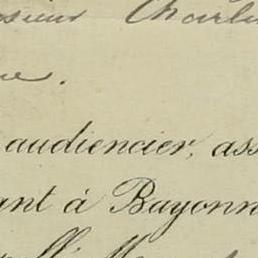 sieur Charl
audiencier, ass
ant à Bayonn